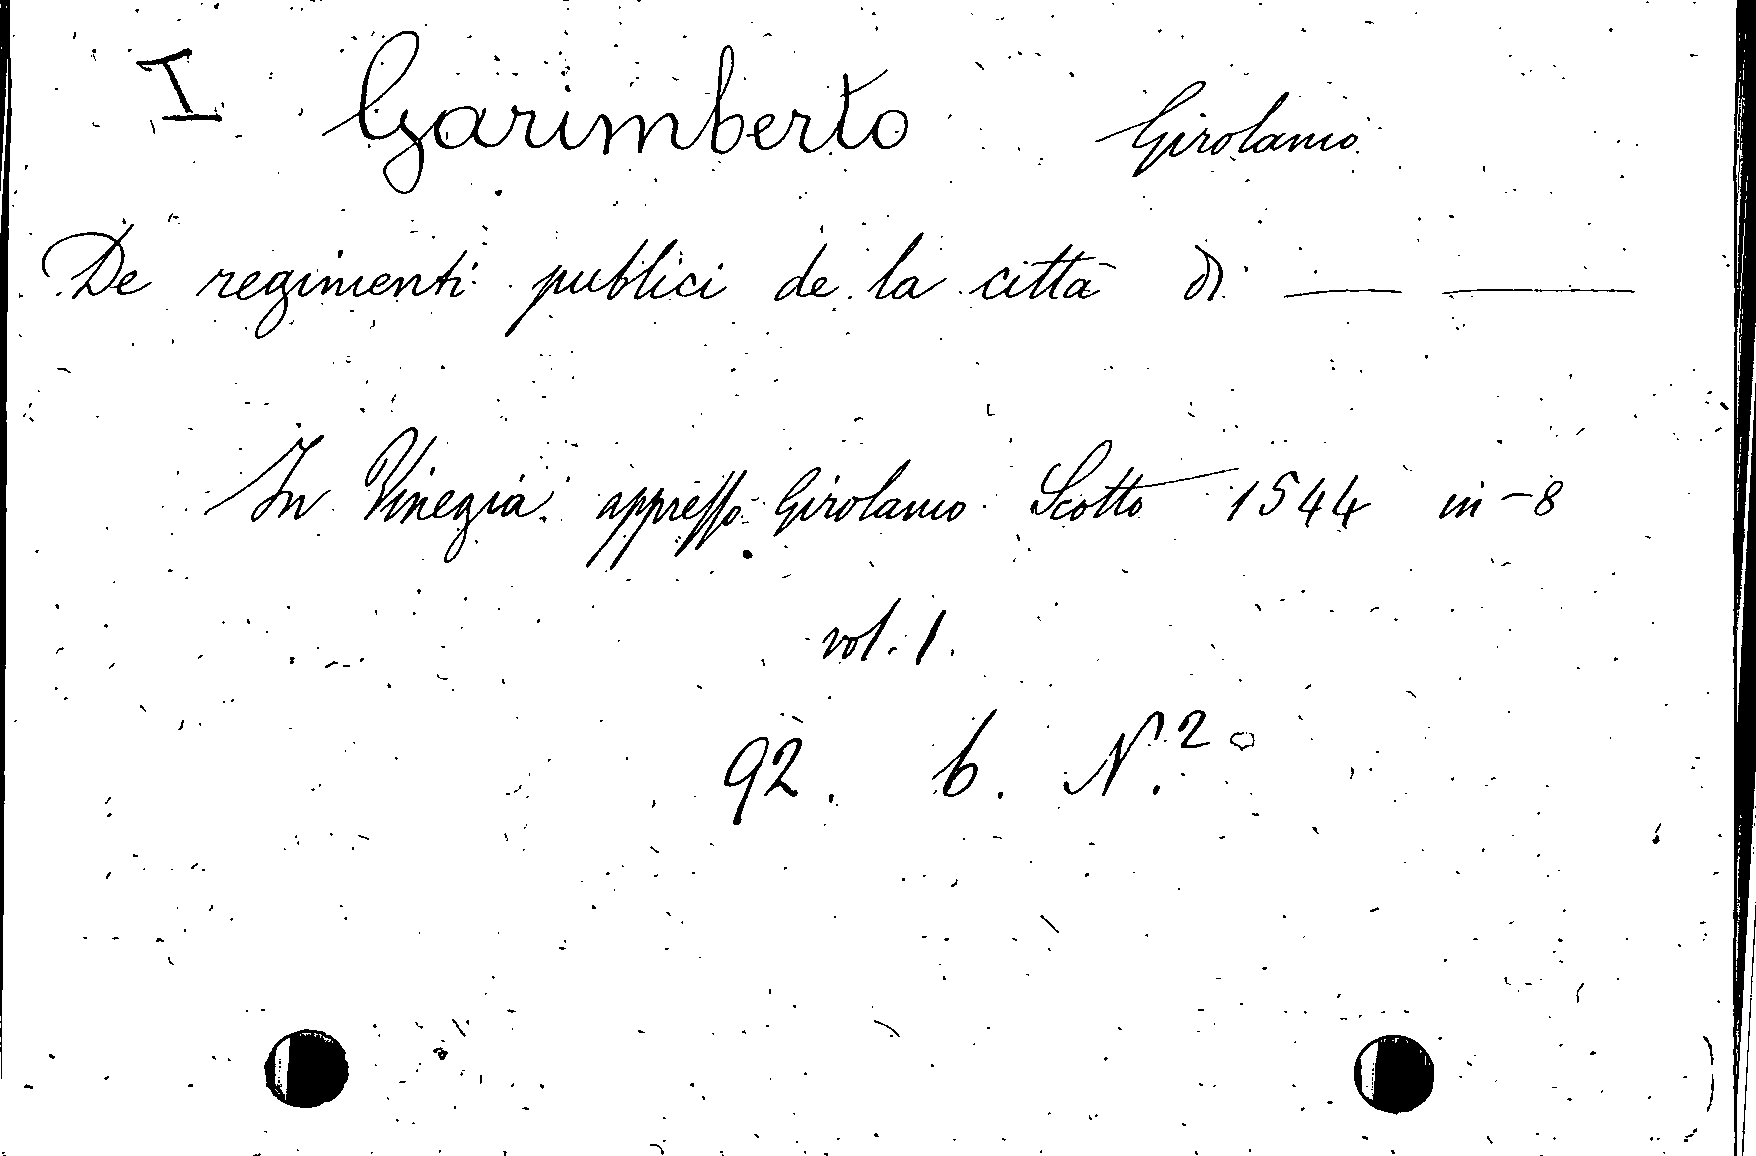 I Garimberto Girolamo
De regimenti publici de la città di — —
In Vinegia appresso Girolamo Scotto 1544 in-8
vol. 1.
92. b. N.º 2